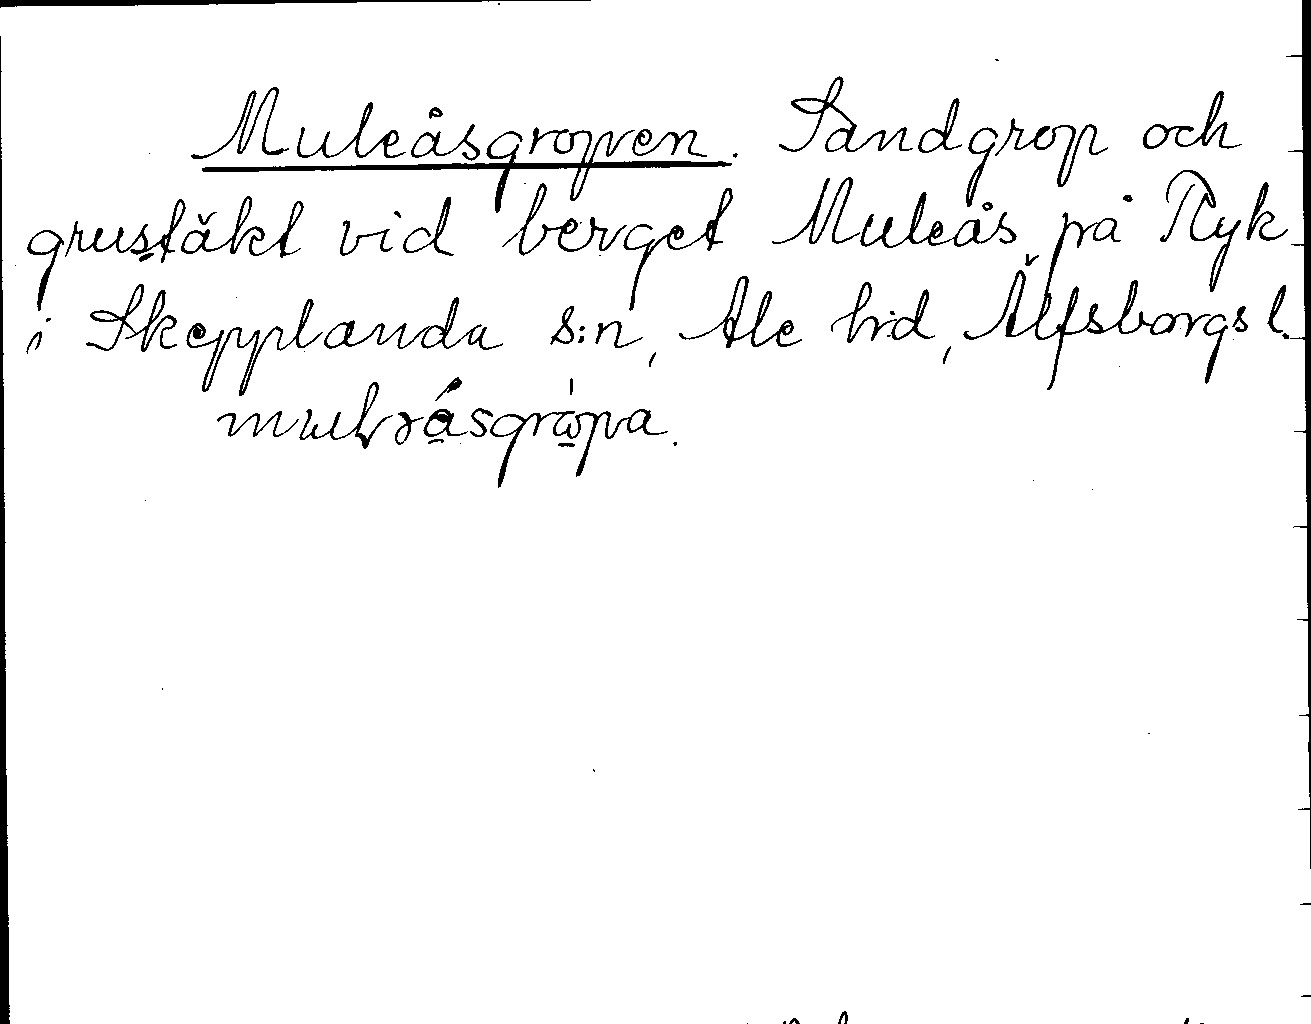 Muleåsgropen. Sandgrop och
grustäkt vid berget Muleås på Ryk
i Skepplanda s:n, Ale hd, Älfsborgs l.